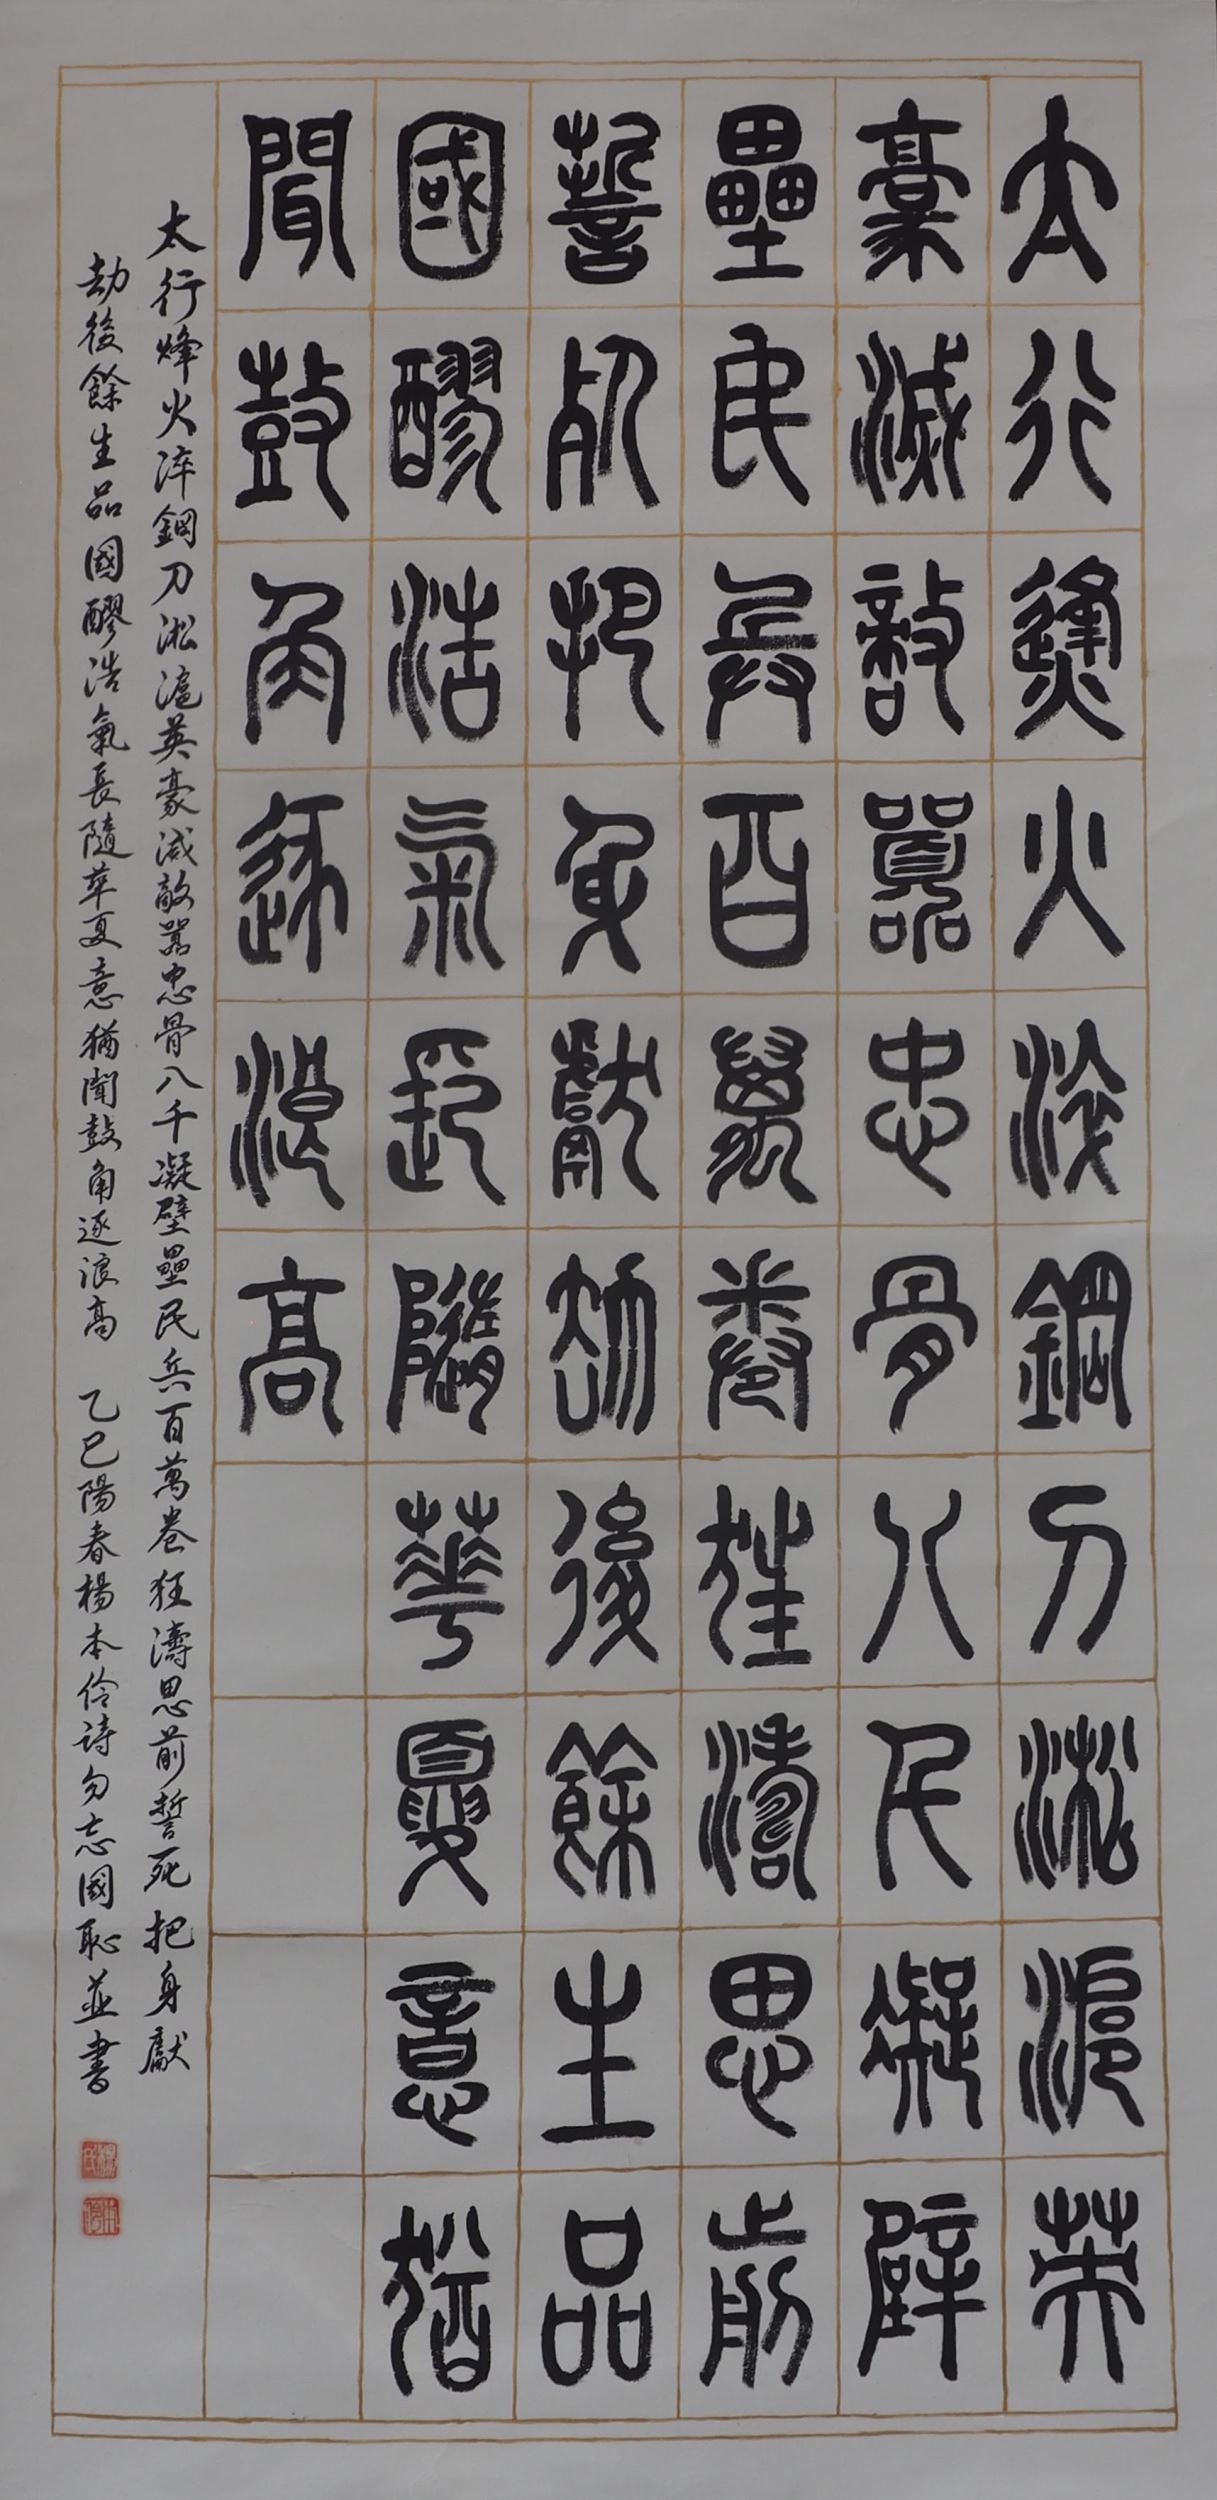 太行烽火淬鋼刀淞滬英
豪滅敵囂忠骨八千凝壁
壘民兵百萬卷狂濤思前
誓死把身獻劫後餘生品
國醪浩氣長隨華夏意猶
聞鼓角逐浪高
太行烽火淬鋼刀淞滬英豪滅敵囂忠骨八千凝壁壘民兵百萬卷狂濤思前誓死把身獻
劫後餘生品國醪浩氣長隨華夏意猶聞鼓角逐浪高 乙巳陽春楊本伶詩勿忘國恥並書